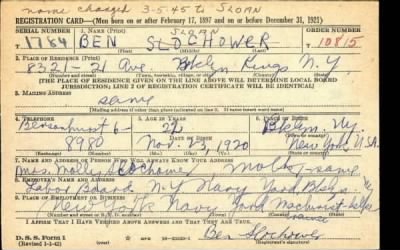 name changed 3-5-45 to SLOAN
REGISTRATION CARD—(Men born on or after February 17, 1897 and on or before December 31, 1921)
SERIAL NUMBER 1. NAME (Print) SLOAN ORDER NUMBER
1784 BEN SLOCHOWER 10815
(First) (Middle) (Last)
2. PLACE OF RESIDENCE (Print)
8321-21 Ave. Bklyn Kings N.Y
(Number and street) (Town, township, village, or city) (County) (State)
[THE PLACE OF RESIDENCE GIVEN ON THE LINE ABOVE WILL DETERMINE LOCAL BOARD
JURISDICTION; LINE 2 OF REGISTRATION CERTIFICATE WILL BE IDENTICAL]
3. MAILING ADDRESS
same
(Mailing address if other than place indicated on line 2. If same insert word same)
4. TELEPHONE 5. AGE IN YEARS 6. PLACE OF BIRTH
Bensonhurst 6- 21 Bklyn. Ny.
8980 DATE OF BIRTH
Nov. 23, 1920 New York U.S.A.
7. NAME AND ADDRESS OF PERSON WHO WILL ALWAYS KNOW YOUR ADDRESS
Mrs. Mollie Slochower Mother same
8. EMPLOYER'S NAME AND ADDRESS
Labor Board N.Y Navy Yard Bklyn
9. PLACE OF EMPLOYMENT OR BUSINESS
New York Navy Yard Machinist helper
I AFFIRM THAT I HAVE VERIFIED ABOVE ANSWERS AND THAT THEY ARE TRUE.
D. S. S. Form 1
(Revised 1-1-42)
Ben Slochower
(Registrant's signature)